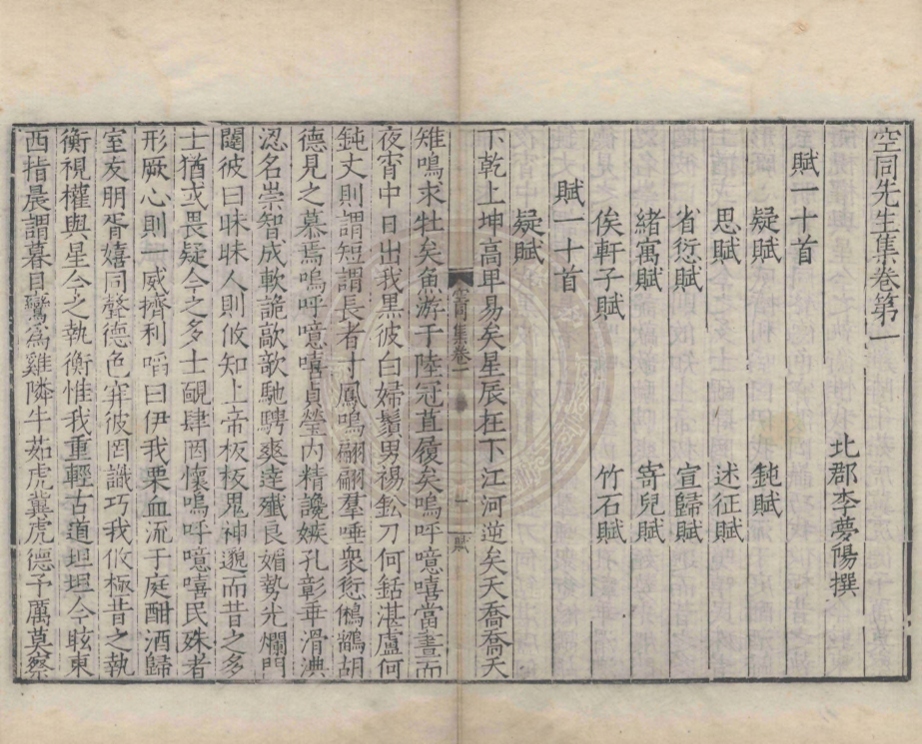 空同先生集卷第一
北郡李夢陽撰
賦一十首
疑賦 鈍賦
思賦 述征賦
省愆賦 宣歸賦
緒寓賦 寄兒賦
俟軒子賦 竹石賦
賦一十首
疑賦
下乾上坤高卑易矣星辰在下江河逆矣天喬喬天
空同集卷一 一 賦
雉鳴求牡矣魚游于陸冠苴履矣嗚呼噫嘻當晝而
夜宵中日出我黑彼白婦鬚男裼鈆刀何銛湛盧何
鈍丈則謂短謂長者寸鳳鳴翩翩羣唾衆愆鵂鶹胡
德見之慕焉嗚呼噫嘻貞瑩内精讒嫉孔彰垂滑淟
涊名崇智成軟詭歊歊馳騁爽達殲良媚勢光爛門
閭彼曰昧昧人則攸知上帝板板鬼神邈而昔之多
士猶或畏疑今之多士靦肆罔懷嗚呼噫嘻民殊者
形厥心則一威擠利啗曰伊我栗血流于庭酣酒歸
室友朋胥嬉同聲德色穽彼罔識巧我攸極昔之執
衡視權與星今之執衡惟我重輕古道坦坦今眩東
西指晨謂暮目鸞爲雞隣牛茹虎冀虎德予厲莫察